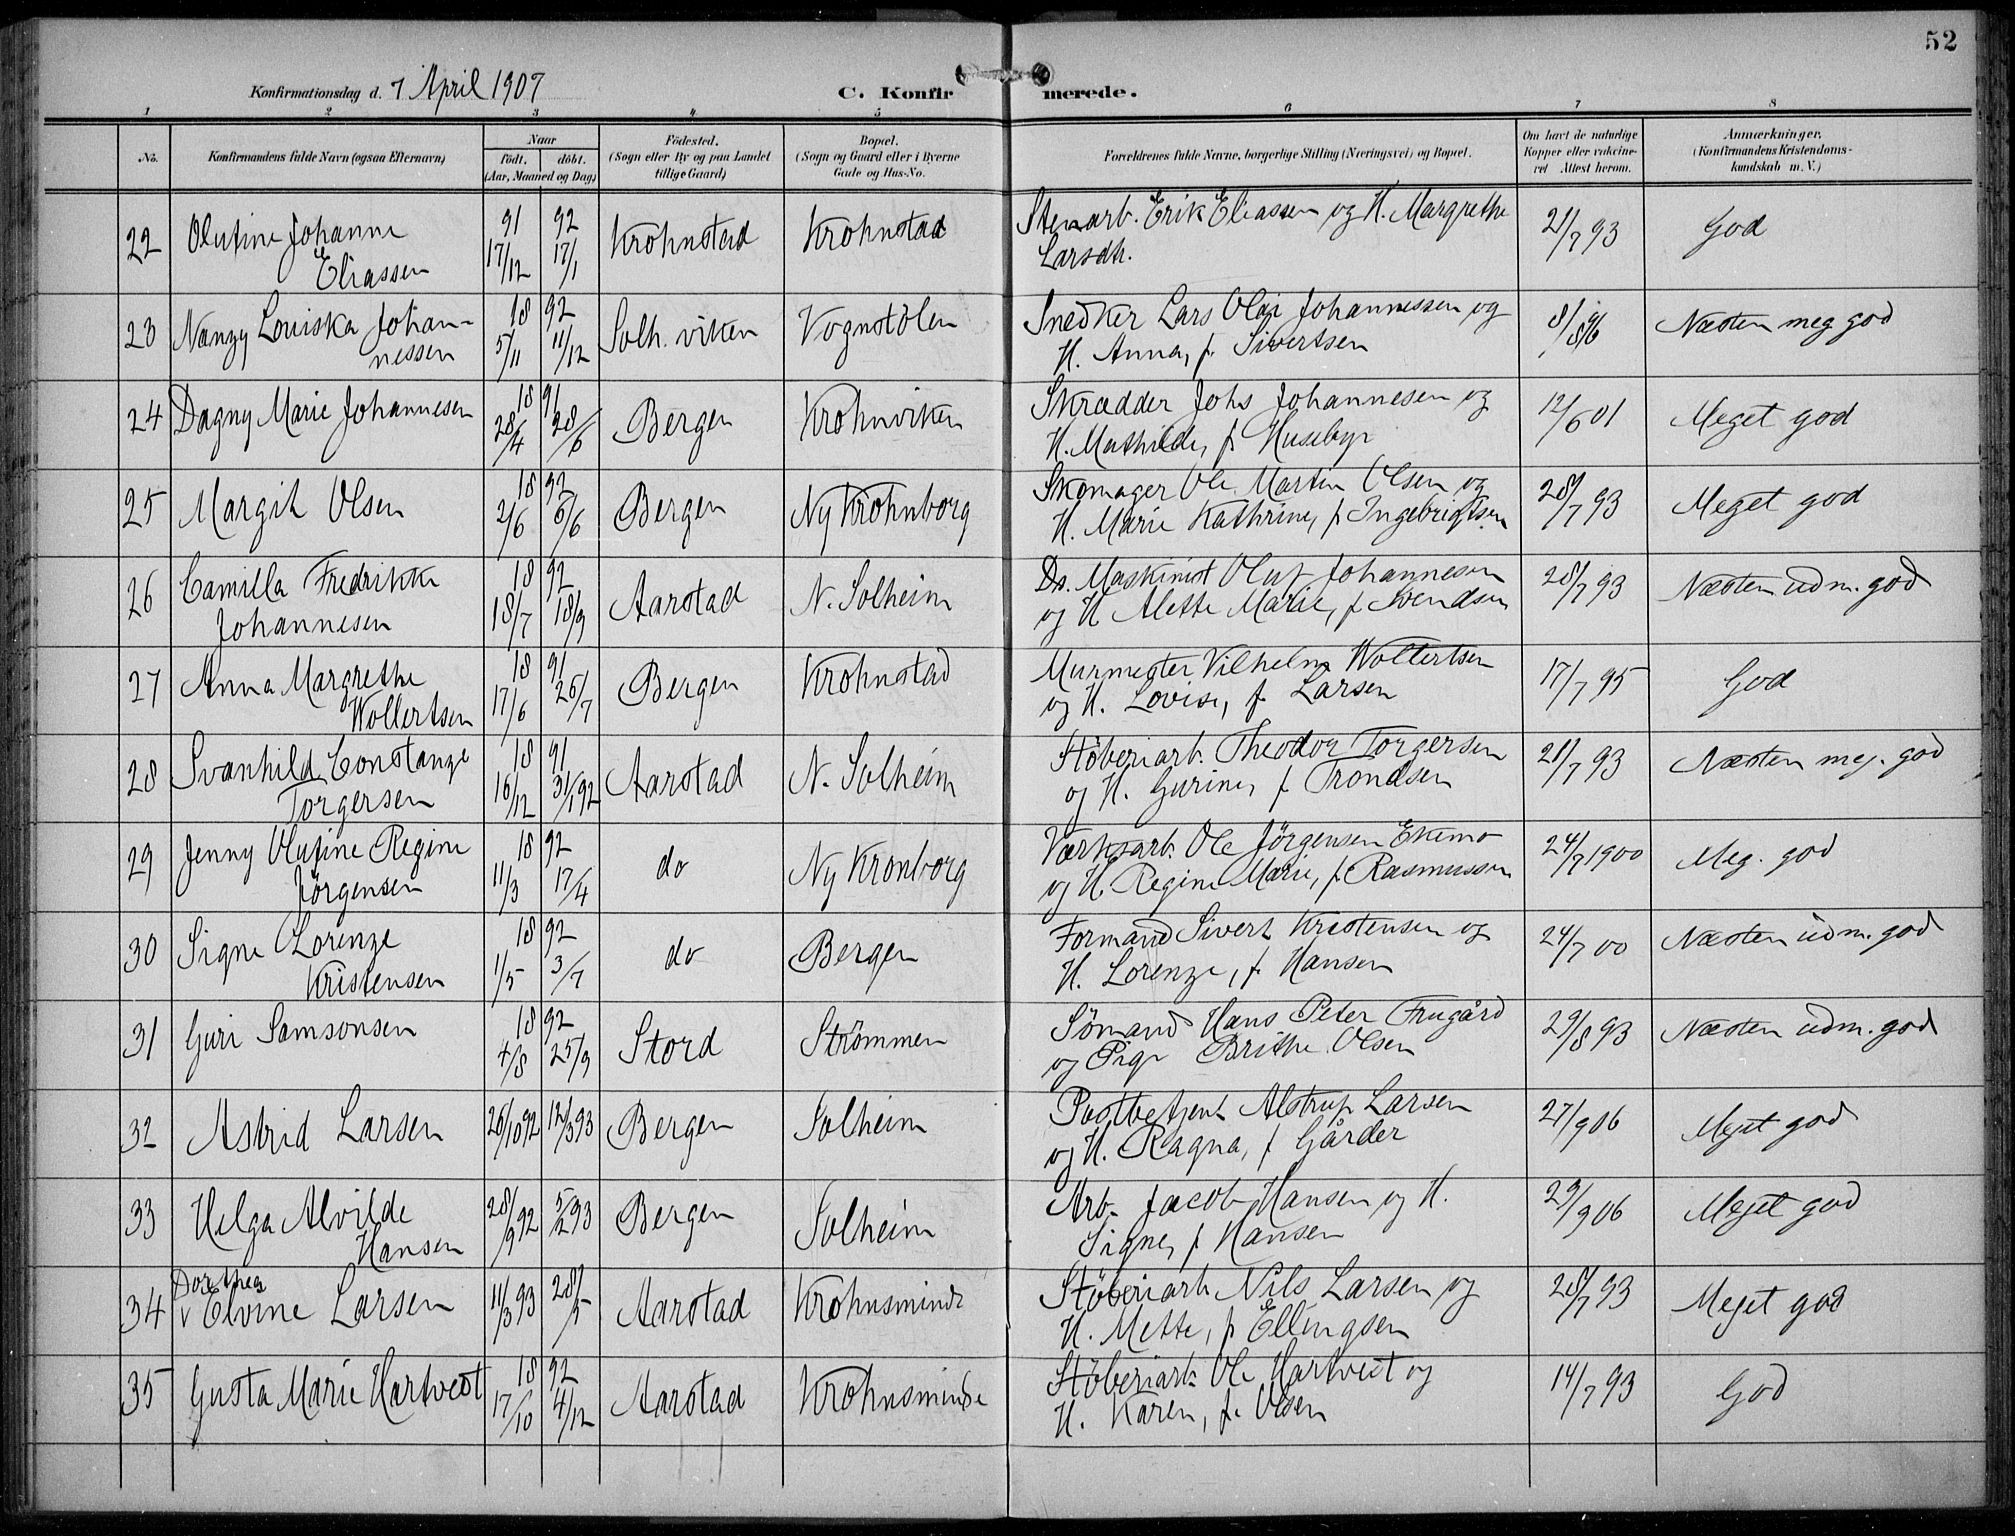 52
Konfirmationsdag d. 7 April 1907
C. Konfirmerede.
1 2 3 4 5 6 7 8
No.
Konfirmandens fulde Navn (ogsaa Efternavn)
Naar
født. døbt.
(Aar, Maaned og Dag)
Födested.
(Sogn eller By og paa Landet
tillige Gaard)
Bopæl.
(Sogn og Gaard eller i Byerne
Gade og Hus-No.
Forældrenes fulde Navne, borgerlige Stilling (Næringsvei) og Bopæl.
Om havt de naturlige
Kopper eller vakcine-
ret Attest herom.
Anmærkninger.
(Konfirmandens Kristendoms-
kundskab m. V.)
22 Olufine Johanne Eliassen 91 17/12 92 17/1 Krohnstad Krohnstad Stenarb. Erik Eliassen og H. Margrethe
Larsdtr. 21/7 93 God
23 Nanzy Louiska Johannessen 18 92 5/11 11/12 Solh. viken Vognstølen Snedker Lars Olai Johannessen og
H. Anna, f. Sivertsen 8/8 96 Næsten meg god
24 Dagny Marie Johannesen 18 91 28/4 28/6 Bergen Krohnviken Skrædder Johs Johannesen og
H. Mathilde, f Husebye 12/6 01 Meget god
25 Margit Olsen 18 92 2/6 6/6 Bergen Ny Krohnborg Skomager Ole Martin Olsen og
H. Marie Kathrine, f Ingebrigtsen 28/7 93 Meget god
26 Camilla Fredrikke
Johannesen 18 92 18/7 18/9 Aarstad N. Solheim Ds. Maskinist Oluf Johannesen
og H Alette Marie, f. Svendsen 28/7 93 Næsten udm. god
27 Anna Margrethe
Wollertsen 18 91 17/6 26/7 Bergen Krohnstad Murmester Vilhelm Wollertsen
og H. Lovise, f. Larsen 17/7 95 God
28 Svanhild Constanze
Torgersen 18 91 16/12 31/1 92 Aarstad N. Solheim Støberiarb. Theodor Torgersen
og H. Gurine, f Trondsen 21/7 93 Næsten meg. god
29 Jenny Olufine Regine
Jørgensen 18 92 11/3 17/4 do Ny Kronborg Værksarb. Ole Jørgensen Ekemo
og H. Regine Marie, f. Rasmussen 24/7 1900 Meg. god
30 Signe Lorenze
Kristensen 18 92 1/5 3/7 do Bergen Formand Sivert Kristensen og
H. Lorenze, f. Hansen 24/7 00 Næsten udm. god
31 Guri Samsonsen 18 92 4/8 25/9 Stord Strømmen Sömand Hans Peter Frugård
og Pige Brithe Olsen 29/8 93 Næsten udm. god
32 Astrid Larsen 26/10 92 12/3 93 Bergen Solheim Postbetjent Alstrup Larsen
og H. Ragna, f Gårder 27/9 06 Meget god
33 Helga Alvilde
Hansen 28/9 92 5/2 93 Bergen Solheim Arb. Jacob Hansen og H.
Signe, f Hansen 29/9 06 Meget god
34 Dorthea
v Elvine Larsen 11/3 93 28/5 Aarstad Krohnsminde Støberiarb Nils Larsen og
H. Mette, f Ellingsen 28/7 93 Meget god
35 Gusta Marie Hartveit 18 92 17/10 4/12 Aarstad Krohnsminde Støberiarb. Ole Hartveit og
H. Karen, f. Olsen 14/7 93 God